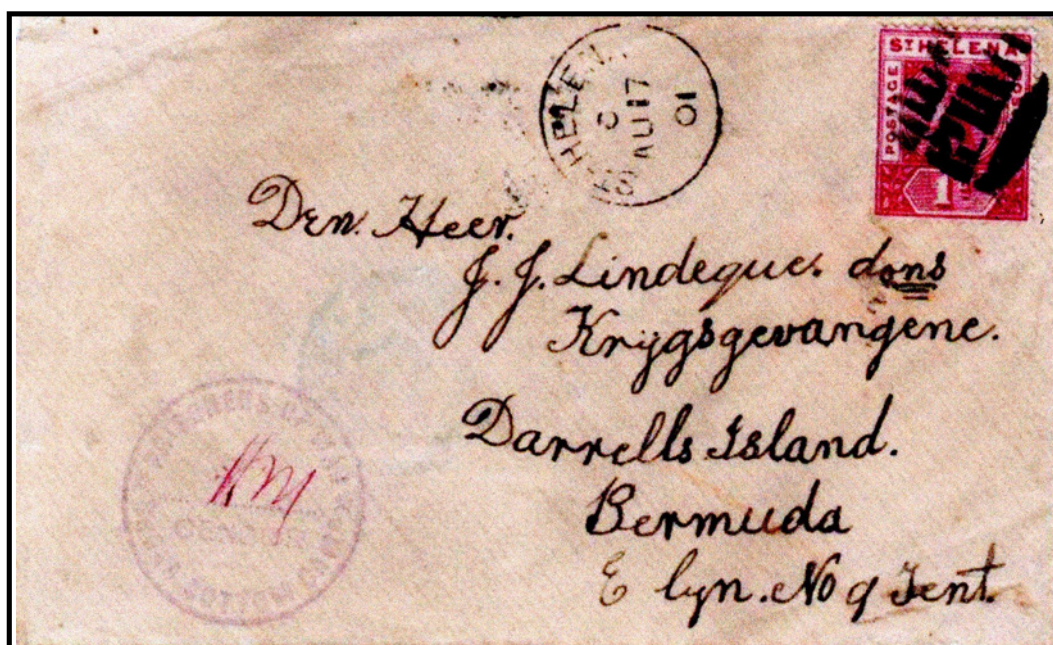 ST HELENA
POSTAGE
1
ST HELENA
C
AU 17
01
Den. Heer.
J. J. Lindeque. dons
Krijgsgevangene.
Darrells Island.
Bermuda
E lyn. No 9 Tent.
PRISONERS OF WAR
CENSOR